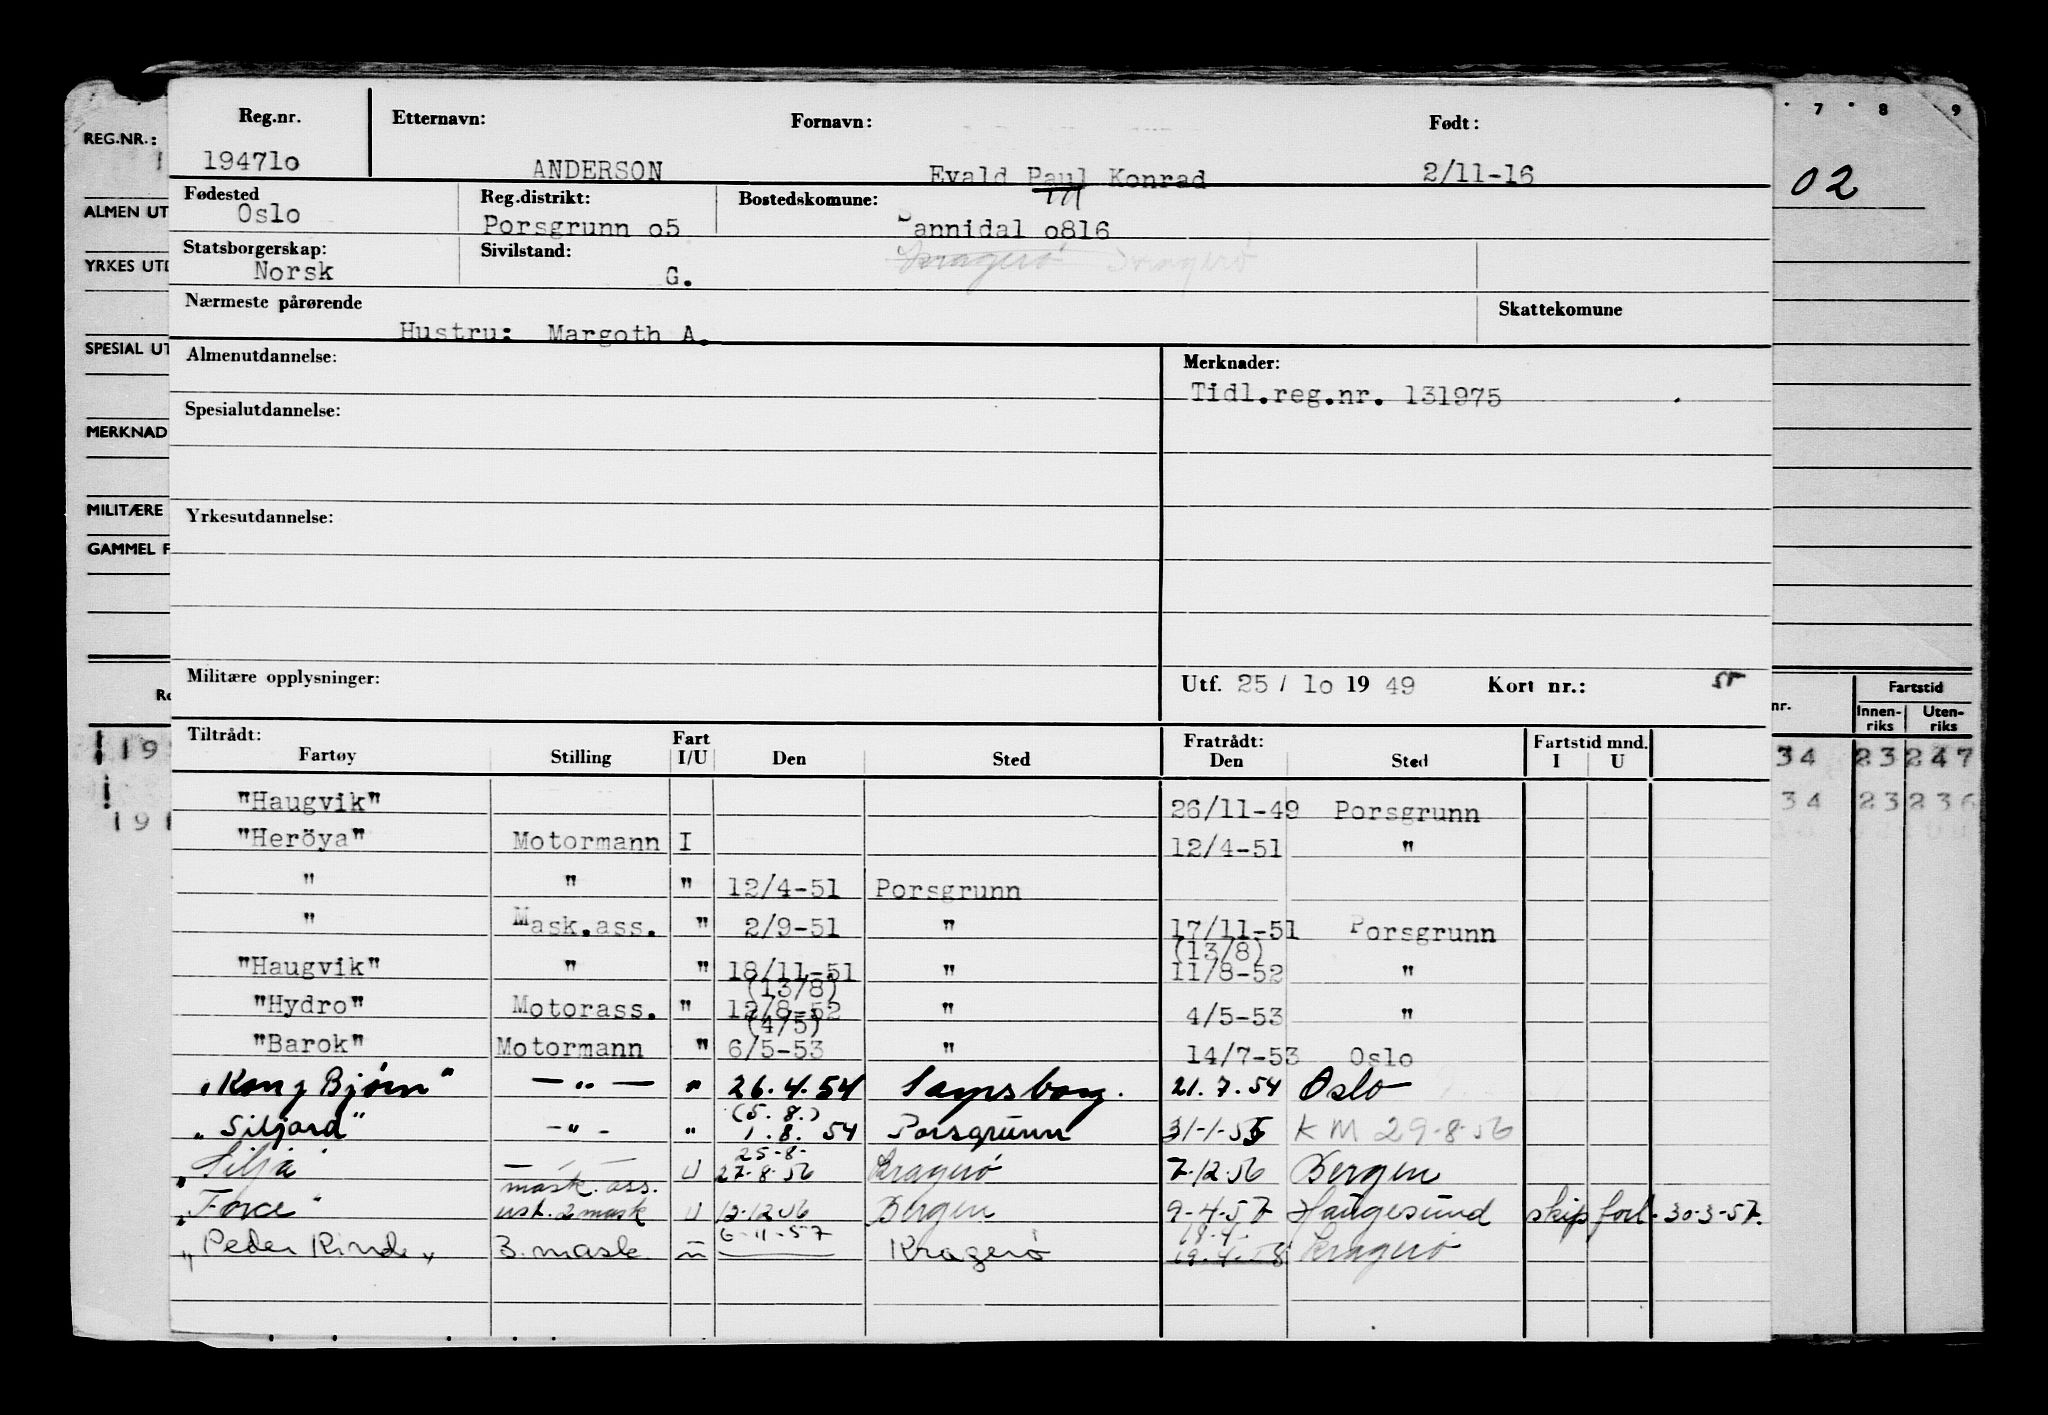 7 8 9
REG.NR.:
Reg.nr. Etternavn: Fornavn: Født:
19471o ANDERSON Evald Paul Konrad 2/11-16
02
ALMEN UT
Fødested Reg.distrikt: Bostedskomune:
Oslo Porsgrunn o5 Sannidal o816
YRKES UTD
Statsborgerskap: Sivilstand: Kragerø Kragerø
Norsk G.
Nærmeste pårørende Skattekomune
Hustru: Margoth A.
SPESIAL UT
Almenutdannelse: Merknader:
Tidl.reg.nr. 131975
Spesialutdannelse:
MERKNAD
MILITÆRE
Yrkesutdannelse:
GAMMEL F
Militære opplysninger: Utf. 25/ 1o 19 49 Kort nr.:
nr. Fartstid
Innen-riks Uten-riks
Tiltrådt: Fratrådt: Fartstid mnd.
Fartøy Stilling Fart I/U Den Sted Den Sted I U
34 23 247
34 23 236
"Haugvik" 26/11-49 Porsgrunn
"Heröya" Motormann I 12/4-51 "
" " " 12/4-51 Porsgrunn
" Mask.ass. " 2/9-51 " 17/11-51 Porsgrunn
(13/8)
"Haugvik" " " 18/11-51 " 11/8-52 "
(13/8)
"Hydro" Motorass. " 12/8-52 " 4/5-53 "
(4/5)
"Barok" Motormann " 6/5-53 " 14/7-53 Oslo
"Kong Bjørn" — " — " 26.4.54 Sarpsborg. 21.7.54 Oslo
(5.8.)
"Siljard" -"- " 1.8.54 Porsgrunn 31-1-55 K M 29-8-56
25-8-
"Silja" — " — U 27-8-56 Kragerø 7-12-56 Bergen
mask. ass.
"Force" ust. 2 mask U 12-12 56 Bergen 9-4-57 Haugesund skip forl. 30-3-57.
6-11-57 18-4-
"Peder Rinde" 3. mask. u Kragerø 19-4-58 Kragerø